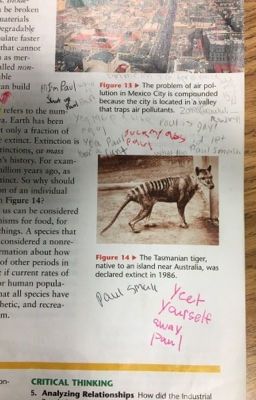 be broken
materials
egradable
ulate faster
that cannot
as mer-
lled non-
ble
an build
Hi I'm Paul
Figure 13 ► The problem of air pol-
lution in Mexico City is compounded
because the city is located in a valley
that traps air pollutants.
refers to the num-
a. Earth has been
only a fraction of
extinct. Extinction is
tinctions, or mass
's history. For exam-
illion years ago, as
tinct. So why should
on of an individual
Figure 14?
us can be considered
nisms for food, for
hings. A species that
considered a nonre-
rmation about how
of other periods in
if current rates of
r human popula-
hat all species have
hetic, and recrea-
m.
yea Paul
Paul
Paul Small
Figure 14 ► The Tasmanian tiger,
native to an island near Australia, was
declared extinct in 1986.
Paul small
yeet
yourself
away
Paul
on-
CRITICAL THINKING
5. Analyzing Relationships How did the Industrial